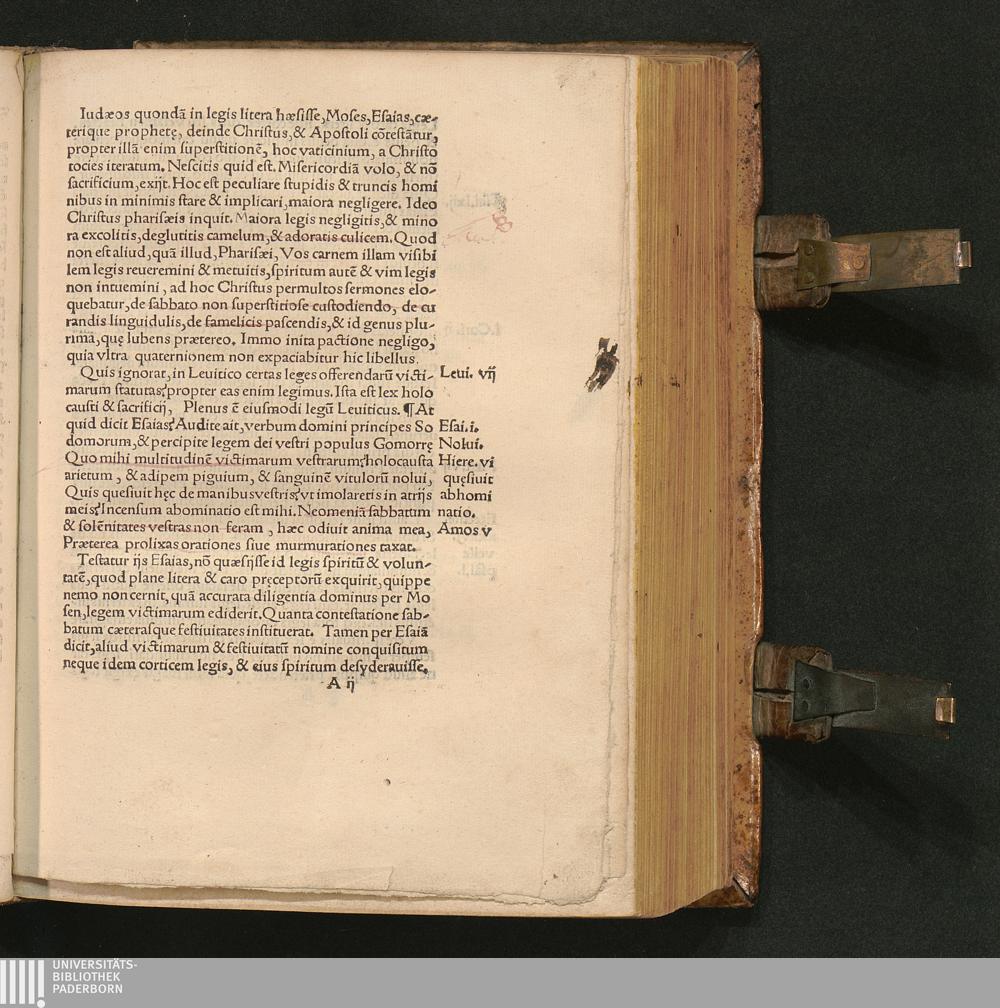 Iudæos quondã in legis litera hæsisse, Moses, Esaias, cæ-
terique prophetę, deinde Christus, & Apostoli cõtestãtur,
propter illã enim superstitionẽ, hoc vaticinium, a Christo
tocies iteratum. Nescitis quid est. Misericordiã volo, & nõ
sacrificium, exijt. Hoc est peculiare stupidis & truncis homi
nibus in minimis stare & implicari, maiora negligere. Ideo
Christus pharisæis inquit. Maiora legis negligitis, & mino
ra excolitis, deglutitis camelum, & adoratis culicem. Quod
non est aliud, quã illud, Pharisæi, Vos carnem illam visibi
lem legis reueremini & metuitis, spiritum autẽ & vim legis
non intuemini, ad hoc Christus permultos sermones elo-
quebatur, de sabbato non superstitiose custodiendo, de cu
randis linguidulis, de famelicis pascendis, & id genus plu-
rima, quę lubens prætereo. Immo inita pactione negligo,
quia vltra quaternionem non expaciabitur hic libellus.
Quis ignorat, in Leuitico certas leges offerendarũ victi- Leui. vij
marum statutas? propter eas enim legimus. Ista est lex holo
causti & sacrificij, Plenus ẽ eiusmodi legũ Leuiticus. ¶ At
quid dicit Esaias? Audite ait, verbum domini principes So Esai. i.
domorum, & percipite legem dei vestri populus Gomorrę Nolui.
Quo mihi multitudinẽ victimarum vestrarum? holocausta Hiere. vi
arietum, & adipem piguium, & sanguinẽ vitulorũ nolui, quęsiuit
Quis quesiuit hęc de manibus vestris? vt imolaretis in atrijs abhomi
meis? Incensum abominatio est mihi. Neomeniã sabbatum natio.
& solẽnitates vestras non feram, hæc odiuit anima mea, Amos v
Præterea prolixas orationes siue murmurationes taxat.
Testatur ijs Esaias, nõ quæsijsse id legis spiritũ & volun-
tatẽ, quod plane litera & caro pręceptorũ exquirit, quippe
nemo non cernit, quã accurata diligentia dominus per Mo
sen, legem victimarum ediderit. Quanta contestatione sab-
batum cæterasque festiuitates instituerat. Tamen per Esaiã
dicit, aliud victimarum & festiuitatũ nomine conquisitum
neque idem corticem legis, & eius spiritum desyderauisse.
A ij
UNIVERSITÄTS-
BIBLIOTHEK
PADERBORN